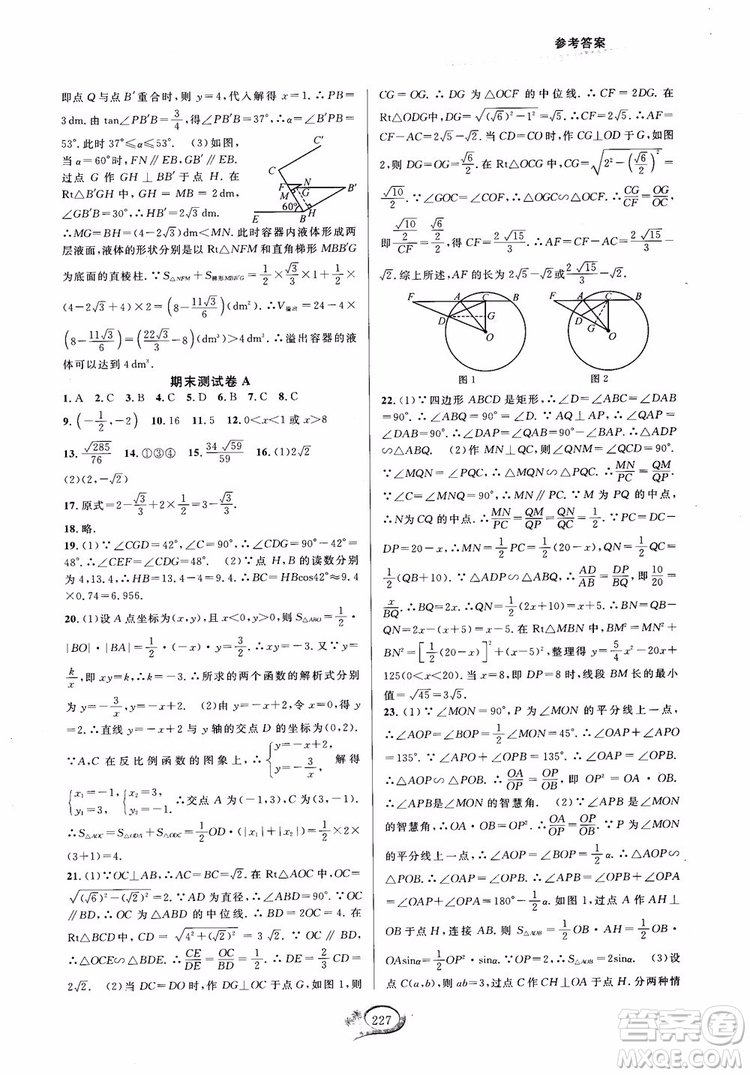 参考答案
即点 Q 与点 B′重合时,则 y=4,代入得 x=1.∴PB=
3 dm.由 tan∠PB′B=3/4,得∠PB′B=37°,∴α=∠B′PB=
53°.此时 37°≤α≤53°. (3)如图,
当 α=60°时,FN∥EB,GB′∥EB.
过点 G 作 GH⊥BB′于点 H.在
Rt△B′GH 中,GH=MB=2 dm,
∠GB′B=30°,∴HB′=2√3 dm.
∴MG=BH=(4-2√3)dm<MN.此时容器内液体形成两
层液面,液体的形状分别是以 Rt△NFM 和直角梯形 MBB′G
为底面的直棱柱.∵S△NFM+S梯形MBB′G=1/2×√3/3×1+1/2×
(4-2√3+4)×2=(8-11√3/6)(dm²).∴V溢出=24-4×
(8-11√3/6)=(22√3/3-8)(dm³).∴溢出容器的液
体可以达到 4 dm³.
期末测试卷 A
1. A 2. C 3. C 4. A 5. D 6. C 7. C 8. C
9. (-1/2,-2) 10. 16 11. 2 12. 0<x<1 或 x>8
13. √285/76 14. ①③④ 15. 34√59/59 16. (1)2√2
(2)(2,-√2)
18. 略.
19. (1)∵∠CGD=42°,∠C=90°,∴∠CDG=
48°.∴∠CEF=∠CDG=48°. (2)∵点 H、B 的读数分别
为 4,13.4,∴HB=9.4.∴BC=HBcos42°≈9.4
×0.74≈6.956.
20. (1)设 A 点坐标为(x,y),且 x<0,y>0,则 S△ABO=1/2·
|BO|·|BA|=1/2·(-x)·y=3/2,∴xy=-3.又∵y=
k/x,即 xy=k,∴k=-3.∴所求的两个函数的解析式分别
为 y=-3/x,y=-x+2. (2)由 y=-x+2,令 x=0,得
y=2.∴直线 y=-x+2 与 y 轴的交点 D 的坐标为(0,2).
∵A,C 在反比例函数的图象上,∴{y=-x+2, y=-3/x, 解得
{x₁=-1, y₁=3, {x₂=3, y₂=-1.∴交点 A 为(-1,3),C 为(3,-1).
∴S△AOC=S△AOD+S△ODC=1/2OD·(|x₁|+|x₂|)=1/2×2×
(3+1)=4.
21. (1)∵OC⊥AB,∴AC=BC=2√2.在 Rt△AOC 中,OC=
√((√6)²-(√2)²)=2.∵AD 为直径,∴∠ABD=90°.∵OC
∥BD,∴OC 为△ABD 的中位线.∴BD=2OC=4.在
Rt△BCD 中,CD=√(4²+(√2)²)=3√2.∵OC∥BD,
∴△OCE∽△BDE.∴CE/DE=OC/BD=2/4=1/2.∴CE/DE=
2√2. (2)当 DC=DO 时,作 DG⊥OC 于点 G,如图 1,则
CG=OG.∴DG 为△OCF 的中位线.∴CF=2DG.在
Rt△ODG 中,DG=√((√6)²-1²)=√5.∴CF=2√5.∴AF=
CF-AC=2√5-√2.当 CD=CO 时,作 CG⊥OD 于 G,如图
2,则 DG=OG=√6/2.在 Rt△OCG 中,CG=√(2²-(√6/2)²)=
√10/2.∵∠GOC=∠COF,∴△OGC∽△OCF.∴CG/CF=OG/OC,
√2.综上所述,AF 的长为 2√5-√2或2√15/3-√2.
图 1
图 2
22. (1)∵四边形 ABCD 是矩形,∴∠DAB=∠ABC=90°.
∴∠ABQ=90°.∵AQ⊥AP,∴∠PAQ=90°.∴∠QAB=
∠DAP=90°-∠BAP.又∵∠D=∠ABQ=90°,∴△ADP
∽△ABQ. (2)作 MN⊥QC,则∠QNM=∠QCD=90°.
又∵∠MQN=∠PQC,∴△MQN∽△PQC.∴MN/PC=QM/PQ
=QN/QC.∵∠PCQ=90°,∴MN∥PC.又∵M 为 PQ 的中点,
∴N 为 CQ 的中点.∴MN/PC=QM/QP=QN/QC=1/2.又∵PC=DC-
DP=20-x,∴MN=1/2PC=1/2(20-x),∴QN=1/2QC=
125(0<x<20).当 x=8,即 DP=8 时,线段 BM 长的最小
值=√45=3√5.
23. (1)∵∠MON=90°,P 为∠MON 的平分线上一点,
∴∠AOP=∠BOP=1/2∠MON=45°.∵∠AOP+∠OAP+
∠APO=180°,∴∠OAP+∠APO=135°.∵∠APB=
135°,∴∠APO+∠OPB=135°.∴∠OAP=∠OPB.
∴△AOP∽△POB.∴OA/OP=OP/OB.∴OP²=OA·OB.
∴∠APB是∠MON 的智慧角. (2)∵∠APB是∠MON
的智慧角,∴OA·OB=OP²,∴OA/OP=OP/OB.∵P 为∠MON
的平分线上一点,∴∠AOP=∠BOP=1/2α.∴△AOP∽
△POB.∴∠OAP=∠OPB.∴∠APB=∠OPB+∠OPA=
∠OAP+∠OPA=180°-1/2α.过点 A 作 AH⊥
OB 于点 H,连接 AB.∴S△AOB=1/2OB·AH=1/2OB·
OAsinα=1/2OP²·sinα.∵OP=2,∴S△AOB=2sinα. (3)设
点 C(a,b),则 ab=3,过点 C 作 CH⊥OA 于点 H.分两种情
227
答案圈
MXQE.COM